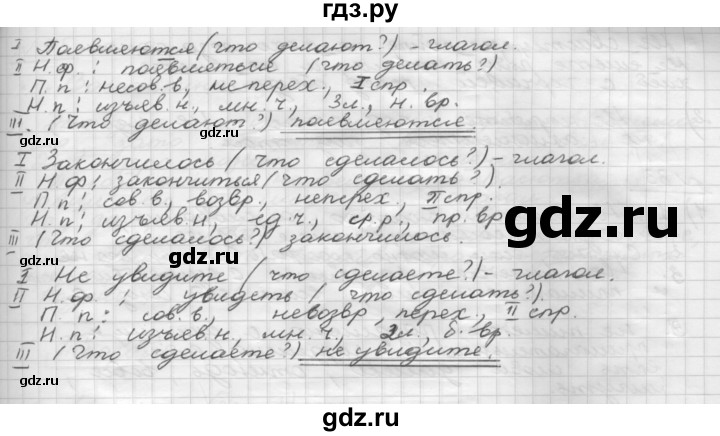 гдз.ру
I Появляются (что делают?) – глагол.
II Н.ф.: появляться (что делать?)
П.п: несов.в, неперех., I спр.
Н.п: изъяв.н., мн.ч., 3л., н.вр.
III. (Что делают?) появляются.
I Закончилось (что сделалось?) – глагол.
II Н.ф: закончиться (что сделать?).
П.п: сов.в., возвр., неперех, II спр.
Н.п: изъяв.н., ед.ч., ср.р., пр.вр
III (Что сделалось?) закончилось.
gdz.ru
gdz.ru
gdz.ru
I Не увидите (что сделаете?) – глагол.
II Н.ф.: увидеть (что сделать?).
П.п: сов.в., невозвр, перех., II спр.
Н.п: изъяв.н., мн.ч., 2л., б.вр.
III (Что сделаете?) не увидите.
gdz.ru
gdz.ru
gdz.ru